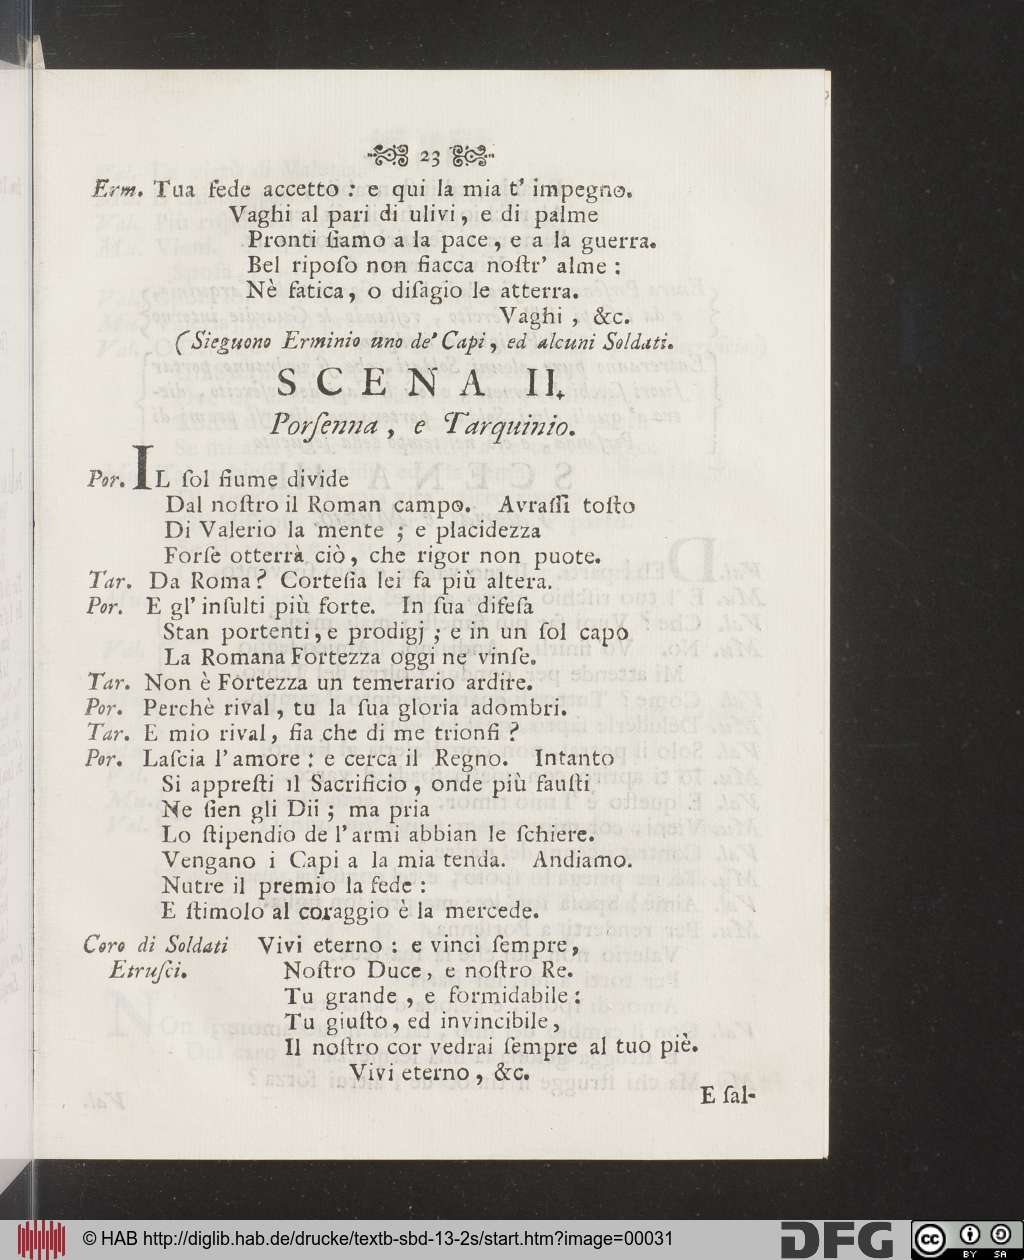 23
Erm. Tua fede accetto : e qui la mia t' impegno.
Vaghi al pari di ulivi, e di palme
Pronti ſiamo a la pace, e a la guerra.
Bel ripoſo non fiacca noſtr' alme :
Nè fatica, o diſagio le atterra.
Vaghi, &c.
(Sieguono Erminio uno de' Capi, ed alcuni Soldati.
SCENA II.
Porſenna, e Tarquinio.
Por. IL ſol fiume divide
Dal noſtro il Roman campo. Avraſſi toſto
Di Valerio la mente ; e placidezza
Forſe otterrà ciò, che rigor non puote.
Tar. Da Roma? Corteſia lei fa più altera.
Por. E gl' inſulti più forte. In ſua difeſa
Stan portenti, e prodigj ; e in un ſol capo
La Romana Fortezza oggi ne vinſe.
Tar. Non è Fortezza un temerario ardire.
Por. Perchè rival, tu la ſua gloria adombri.
Tar. E mio rival, ſia che di me trionfi ?
Por. Laſcia l' amore : e cerca il Regno. Intanto
Si appreſti il Sacrificio, onde più fauſti
Ne ſien gli Dii ; ma pria
Lo ſtipendio de l' armi abbian le ſchiere.
Vengano i Capi a la mia tenda. Andiamo.
Nutre il premio la fede :
E ſtimolo al coraggio è la mercede.
Coro di Soldati Vivi eterno : e vinci ſempre,
Etruſci. Noſtro Duce, e noſtro Re.
Tu grande, e formidabile :
Tu giuſto, ed invincibile,
Il noſtro cor vedrai ſempre al tuo piè.
Vivi eterno, &c.
E ſal-
© HAB http://diglib.hab.de/drucke/textb-sbd-13-2s/start.htm?image=00031
DFG
cc BY SA